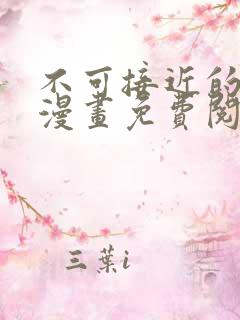 不可接近的
漫畫免費閱
三葉i